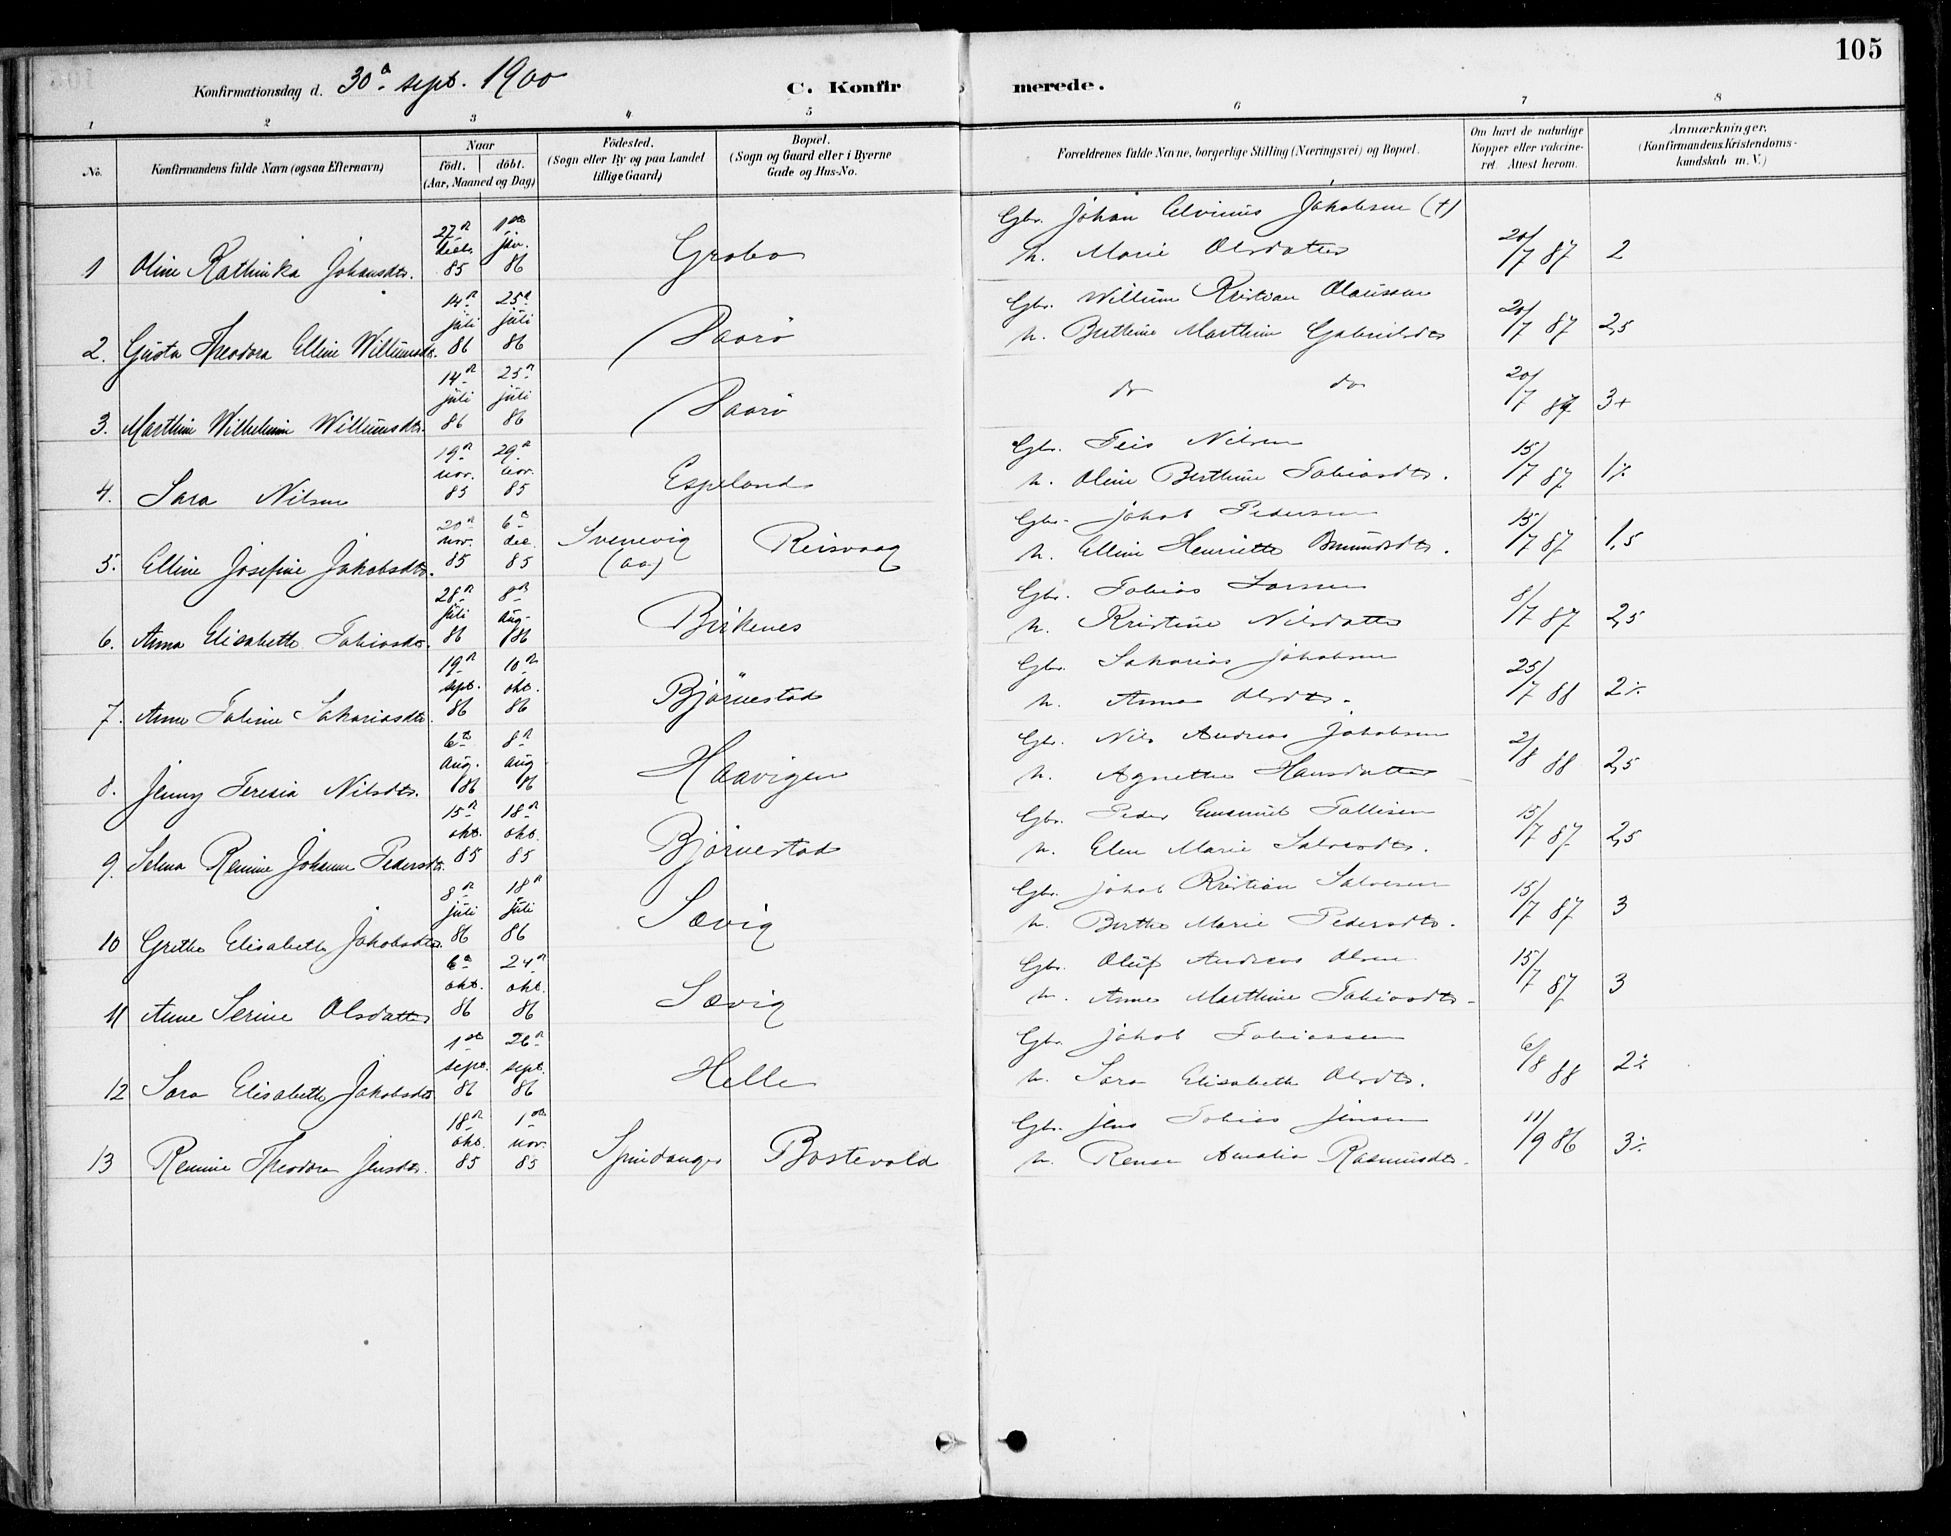 105
Konfirmationsdag d. 30te sept. 1900
C. Konfirmerede.
1 2 3 4 5 6 7 8
No. | Konfirmandens fulde Navn (ogsaa Efternavn) | Naar födt. döbt. (Aar, Maaned og Dag) | Födested. (Sogn eller By og paa Landet tillige Gaard) | Bopæl. (Sogn og Gaard eller i Byerne Gade og Hus-No. | Forældrenes fulde Navne, borgerlige Stilling (Næringsvei) og Bopæl. | Om havt de naturlige Kopper eller vakcineret. Attest herom. | Anmærkninger. (Konfirmandens Kristendomskundskab m. V.)
1 Oline Kathinka Johansdtr. 27de decbr. 85 1ste jan. 86 Grobo Gbr. Johan Elvinus Jakobsen (†)
h. Marie Olsdatter 20/7 87 2
2. Gusta Theodora Elline Willumsdtr. 14de juli 86 25de juli 86 Paarö Gbr. Willum Kristian Olaussen
h. Berthine Marthine Gabrielsdtr 20/7 87 2,5
3. Marthine Wilhelmine Willumsdtr. 14de juli 86 25de juli 86 Paarö do do 20/7 87 3+
4. Sara Nilsen 19de nov. 85 29de nov. 85 Espeland Gbr. Teis Nilsen
h. Oline Berthine Tobiasdtr. 15/7 87 1÷
5. Elline Josefine Jakobsdtr. 20de nov. 85 6te dec. 85 Svenevig (aa) Reisvaag Gbr. Jakob Pedersen
h. Elline Henriette Omundsdtr. 15/7 87 1,5
6. Anna Elisabeth Tobiasdtr. 28de juli 86 8de Aug. 86 Birkenes Gbr. Tobias Larsen
h. Kristine Nilsdatter 8/7 87 2,5
7. Anne Taline Sakariasdtr. 19de sept. 86 10de okt. 86 Björnestad Gbr. Sakarias Jakobsen
h. Anna Olsdtr. 25/7 88 2÷
8. Jenny Teresia Nilsdtr. 6te Aug. 86 8de aug 86 Haavigen Gbr. Nils Andreas Jakobsen
h. Agnethe Hansdatter 2/8 88 2,5
9. Selma Remine Johanne Pedersdtr. 15de okt. 85 18de okt. 85 Björnestad Gbr. Peder Emanuel Tallisen
h. Elen Marie Salvesdtr. 15/7 87 2,5
10 Grethe Elisabeth Jakobsdtr 8de juli 86 18de juli 86 Sævig Gbr. Jakob Kristian Salvesen
h. Berthe Marie Pedersdtr. 15/7 87 3
11 Anne Serine Olsdatter 6te okt. 86 24de okt. 86 Sævig Gbr. Oluf Andreas Olsen
h. Anne Marthine Tobiasdtr. 15/7 87 3
12 Sara Elisabeth Jakobsdtr 1ste sept. 86 26de sept. 86 Helle Gbr. Jakob Tobiassen
h. Sara Elisabeth Olsdtr. 6/8 88 2÷
13 Remine Theodora Jensdtr. 18de okt. 85 1ste nov. 85 Spindanger Bostevold Gbr. Jens Tobias Jensen
h. Rense Amalia Rasmusdtr. 11/9 86 3÷